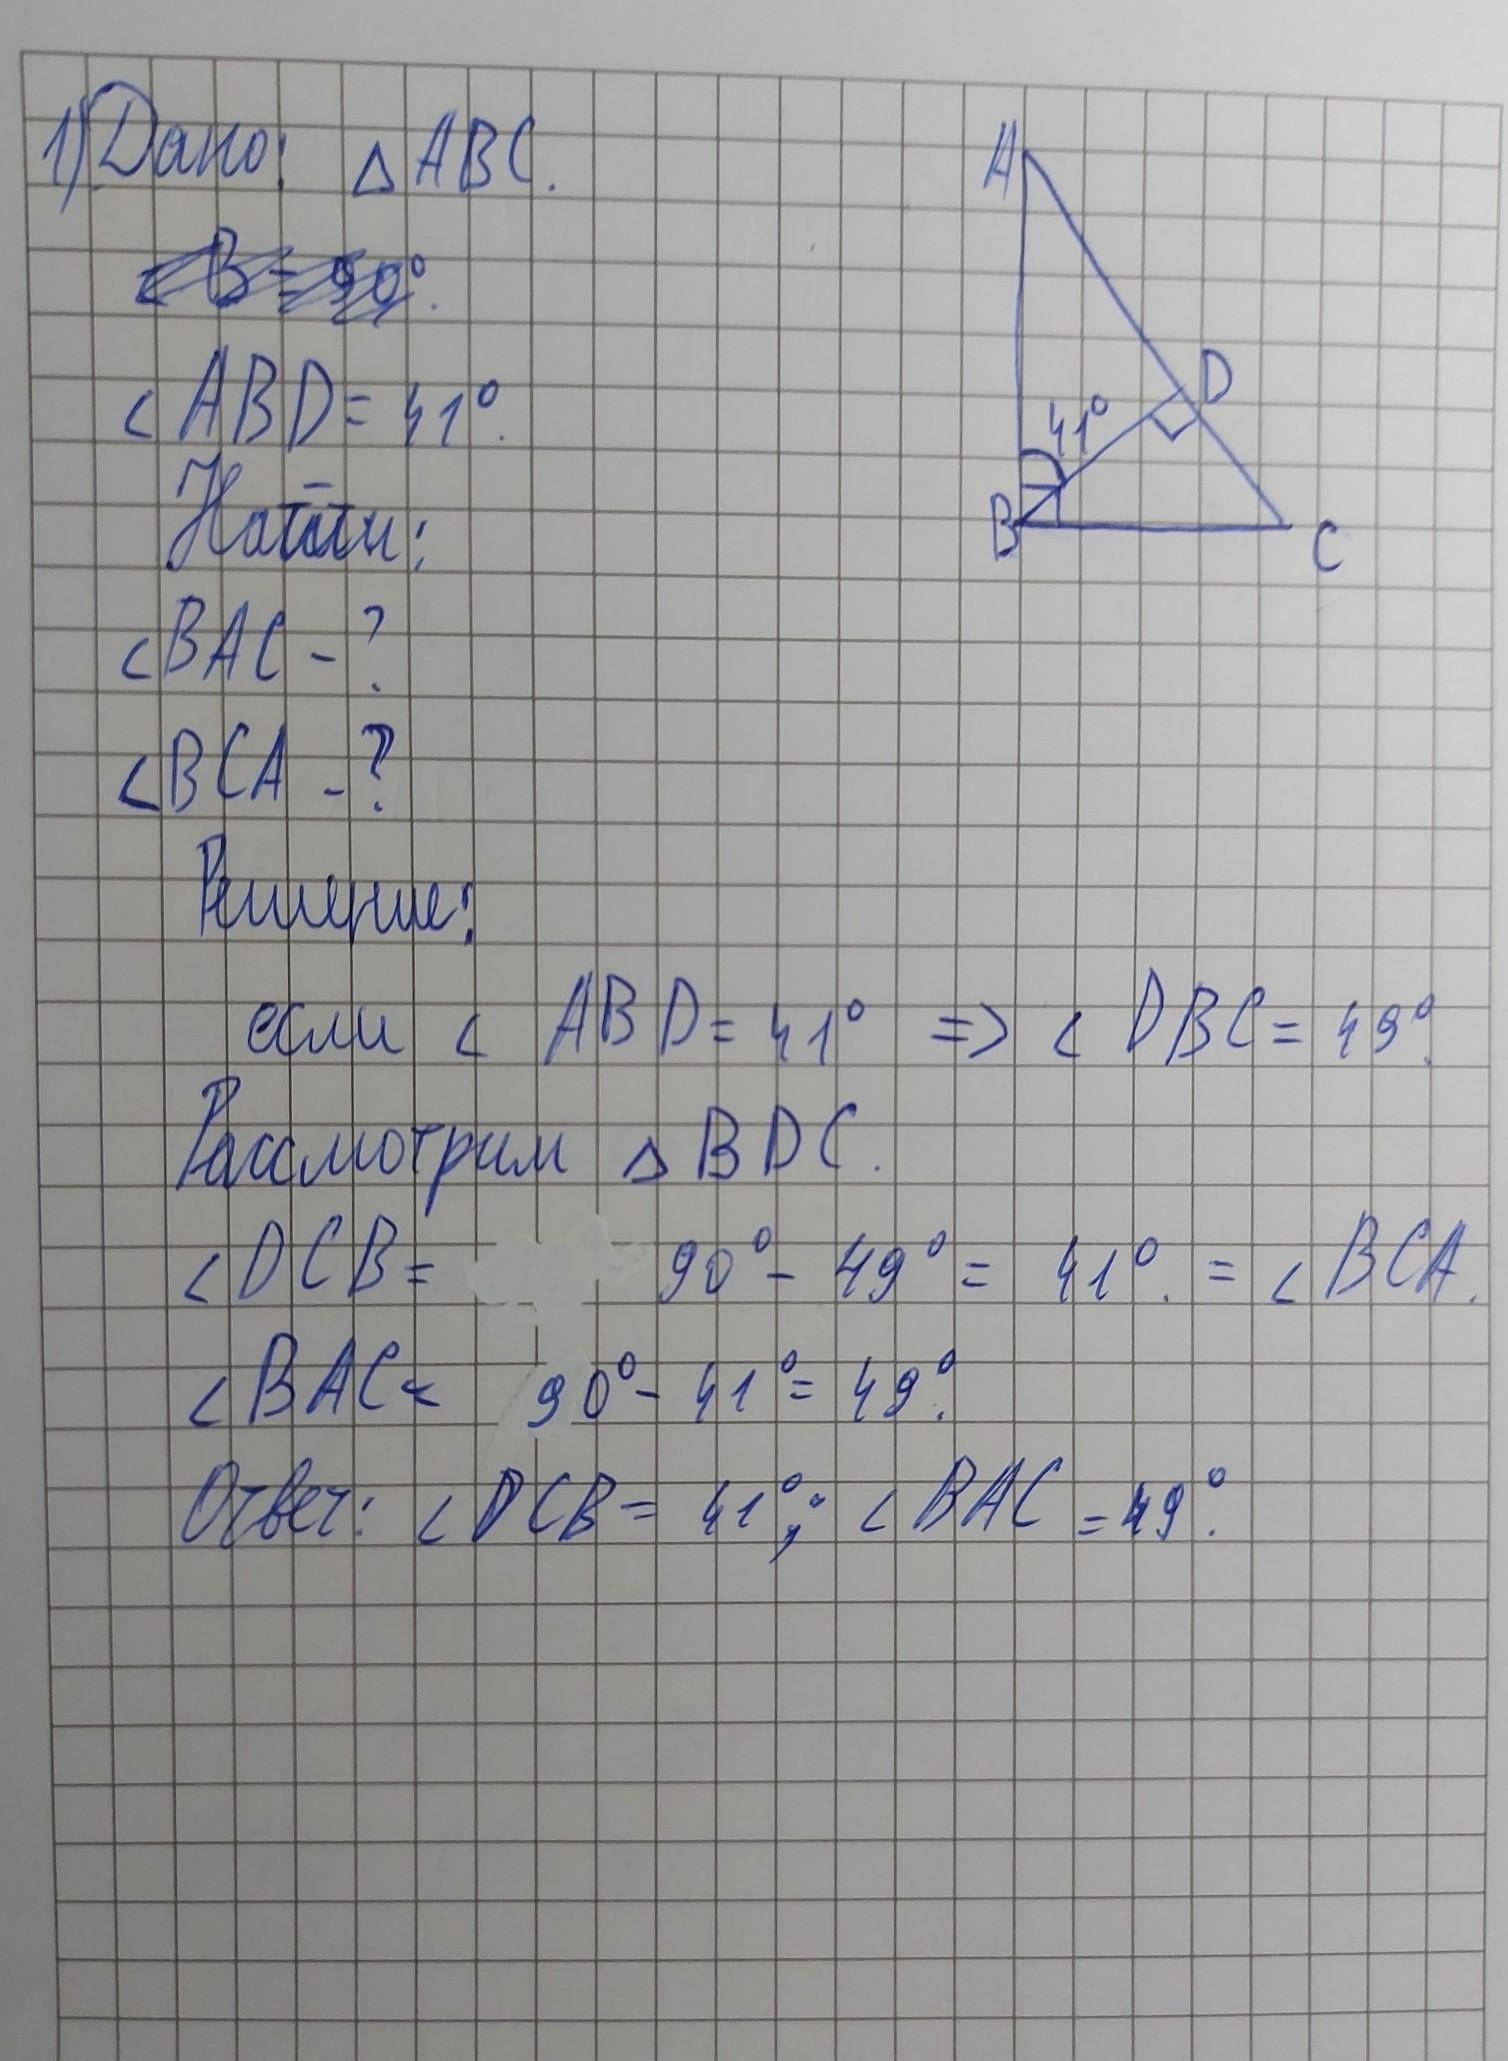 1) Дано: △ABC.
∠B = 90°.
∠ABD = 41°.
Найти:
∠BAC - ?
∠BCA - ?
Решение:
если ∠ABD = 41° => ∠DBC = 49°.
Рассмотрим △BDC.
∠DCB = 90° - 49° = 41°. = ∠BCA.
∠BAC = 90° - 41° = 49°.
Ответ: ∠DCB = 41°; ∠BAC = 49°.
A
D
41°
B
C